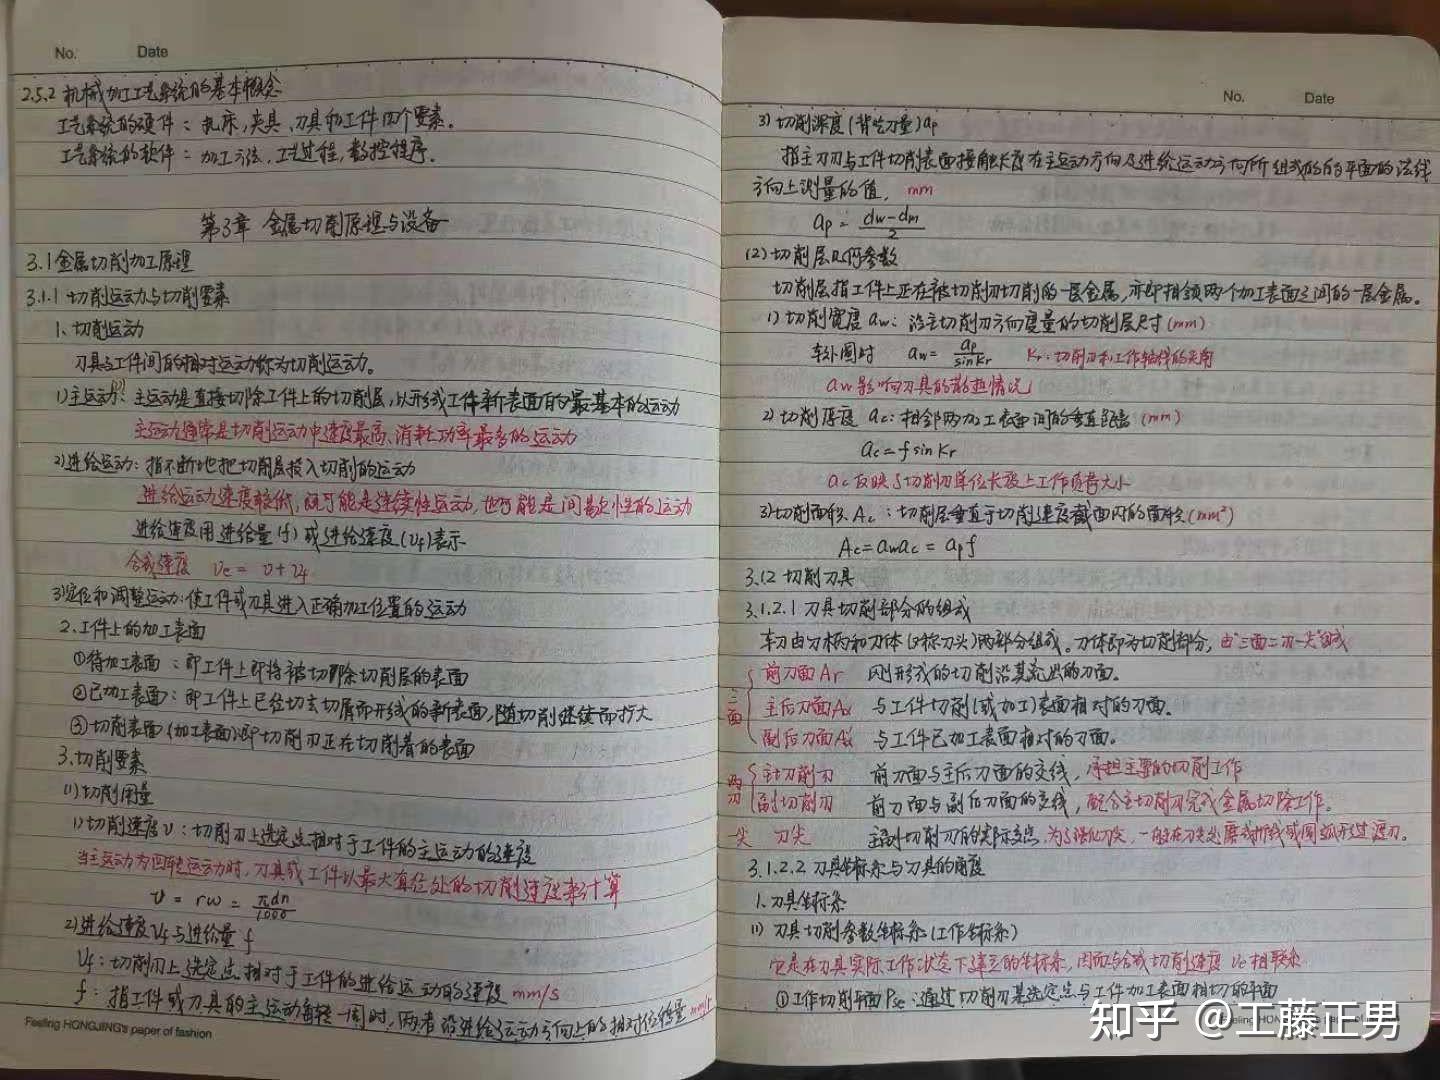 No. Date
2.5.2 机械加工工艺系统的基本概念
工艺系统的硬件：机床，夹具，刀具和工件四个要素。
工艺系统的软件：加工方法，工艺过程，数控程序。
第3章 金属切削原理与设备
3.1 金属切削加工原理
3.1.1 切削运动与切削要素
1. 切削运动
刀具与工件间的相对运动称为切削运动。
1)主运动：主运动是直接切除工件上的切削层，以形成工件新表面的最基本的运动
主运动通常是切削运动中速度最高、消耗功率最多的运动
2)进给运动：指不断地把切削层投入切削的运动
进给运动速度较低，既可能是连续性运动，也可能是间歇性的运动
进给速度用进给量(f)或进给速度(vf)表示
合成速度 ve = v + vf
3)定位和调整运动：使工件或刀具进入正确加工位置的运动
2. 工件上的加工表面
①待加工表面：即工件上即将被切除切削层的表面
②已加工表面：即工件上已经切去切屑而形成的新表面，随切削继续而扩大
③切削表面(加工表面)：即切削刃正在切削着的表面
3. 切削要素
(1)切削用量
1)切削速度v：切削刃上选定点相对于工件的主运动的速度
当主运动为回转运动时，刀具或工件以最大直径处的切削速度来计算
v = rw = πdn/1000
2)进给速度vf与进给量 f
vf：切削刃上选定点相对于工件的进给运动的速度 mm/s
f：指工件或刀具的主运动每转一周时，两者沿进给运动方向上的相对位移量 mm/r
Feeling HONGJING's paper of fashion
No. Date
3)切削深度(背吃刀量)ap
指主刀刃与工件切削表面接触长度在主运动方向及进给运动方向所组成的的平面的法线
方向上测量的值， mm
ap = dw-dm/2
(2)切削层几何参数
切削层指工件上正在被切削刃切削的一层金属，亦即相领两个加工表面之间的一层金属。
1)切削宽度aw：沿主切削刃方向度量的切削层尺寸(mm)
车外圆时 aw = ap/sinKr Kr：切削刃和工作轴线的夹角
aw影响刀具的散热情况
2)切削厚度 ac：相邻两加工表面间的垂直距离 (mm)
ac = f sinKr
ac反映了切削刃单位长度上工作负荷大小
3)切削面积 Ac：切削层垂直于切削速度截面内的面积(mm²)
Ac = awac = apf
3.1.2 切削刀具
3.1.2.1 刀具切削部分的组成
车刀由刀柄和刀体(又称刀头)两部分组成。刀体即为切削部分，由“三面二刃一尖”组成
三面
前刀面Ar 刚形成的切削沿其流出的刀面。
主后刀面Aα 与工件切削(或加工)表面相对的刀面。
副后刀面Aα' 与工件已加工表面相对的刀面。
两刃
主切削刃 前刀面与主后刀面的交线，承担主要的切削工作
副切削刃 前刀面与副后刀面的交线，配合主切削刃完成金属切除工作。
一尖 刀尖 主副切削刃的实际交点，为了强化刀尖，一般在刀尖处磨成折线或圆弧形过渡刃。
3.1.2.2 刀具坐标系与刀具的角度
1. 刀具坐标系
(1) 刀具切削参数坐标系(工作坐标系)
它是在刀具实际工作状态下建立的坐标系，因而与合成切削速度 ve 相联系
①工作切削平面Pse：通过切削刃某选定点与工件加工表面相切的平面
知乎 @工藤正男